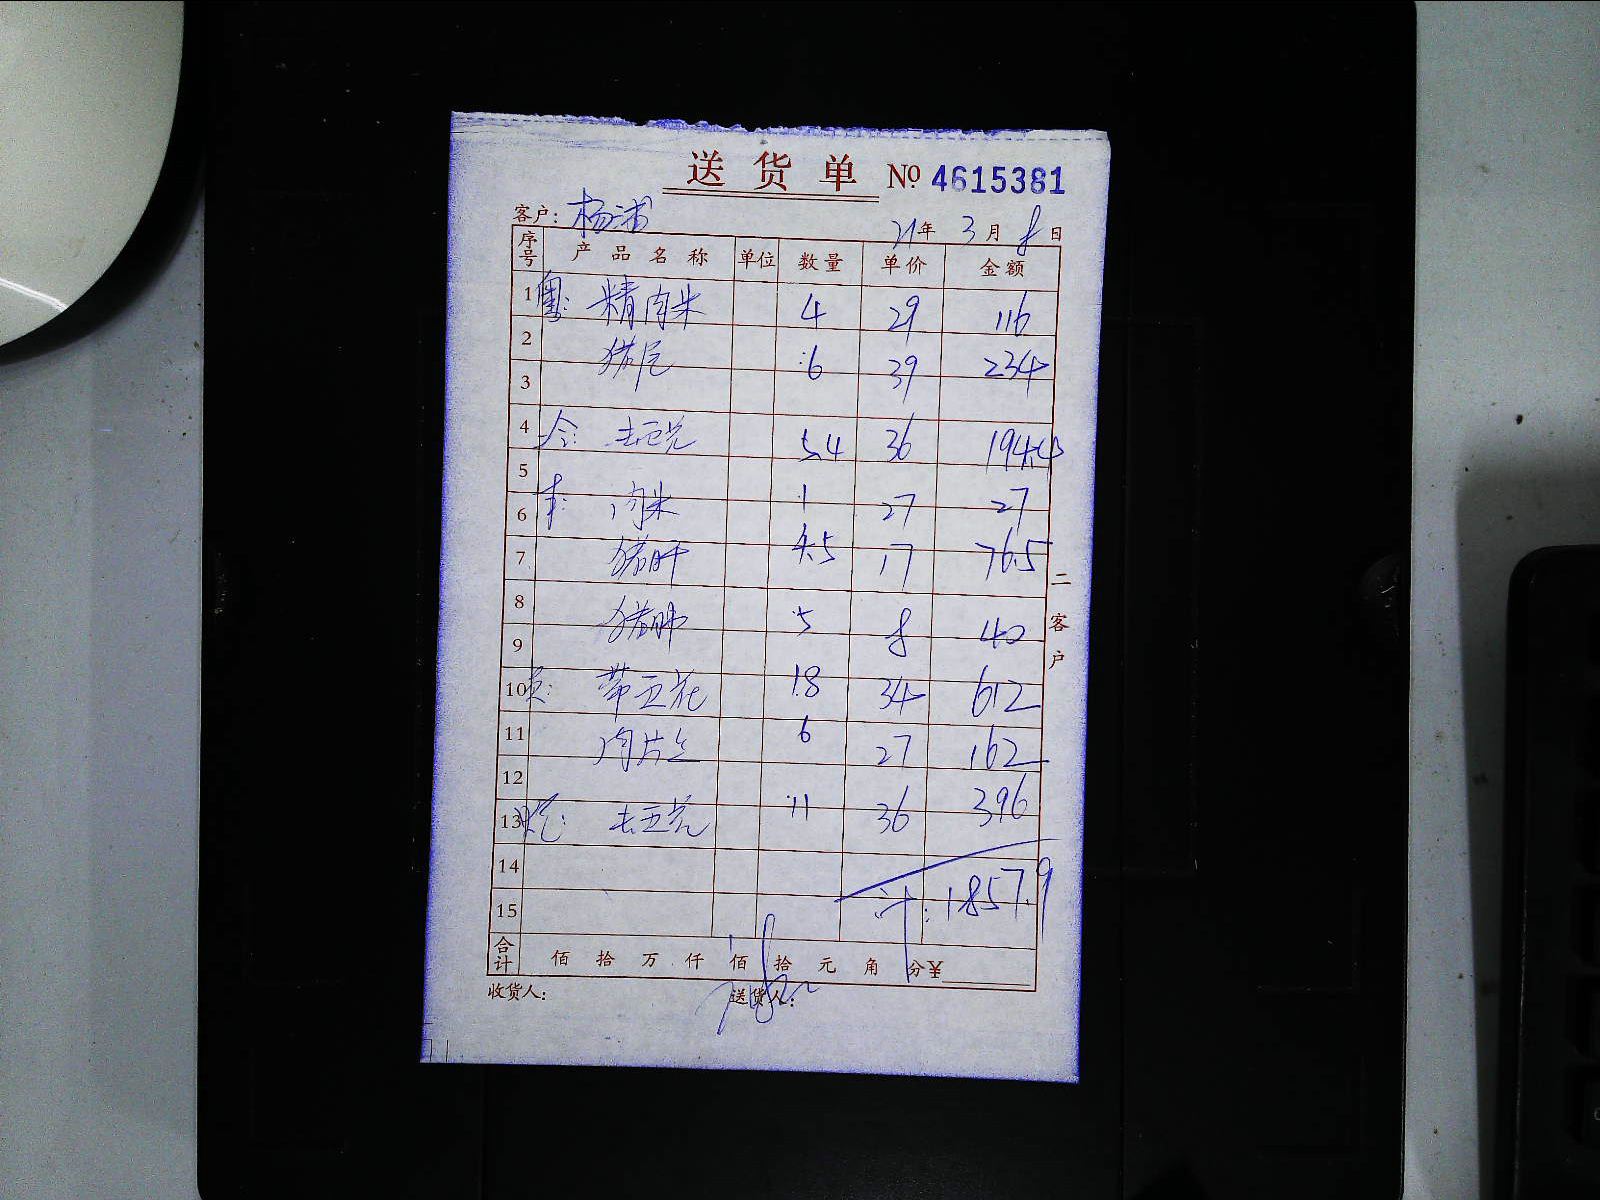 送货单 № 4615381
客户: 杨浦 21年 3月 8日
序号 产品名称 单位 数量 单价 金额
1 精肉米 4 29 116
2 猪尾 6 39 234
3
4 去五花 5.4 36 194.4
5
6 肉米 1 27 27
7 猪肝 4.5 17 76.5
8 猪肺 5 8 40
9
10 带五花 18 34 612
11 肉片丝 6 27 162
12
13 去五花 11 36 396
14
15 计: 1857.9
合计 佰 拾 万 仟 佰 拾 元 角 分 ¥
收货人: 送货人:
二客户